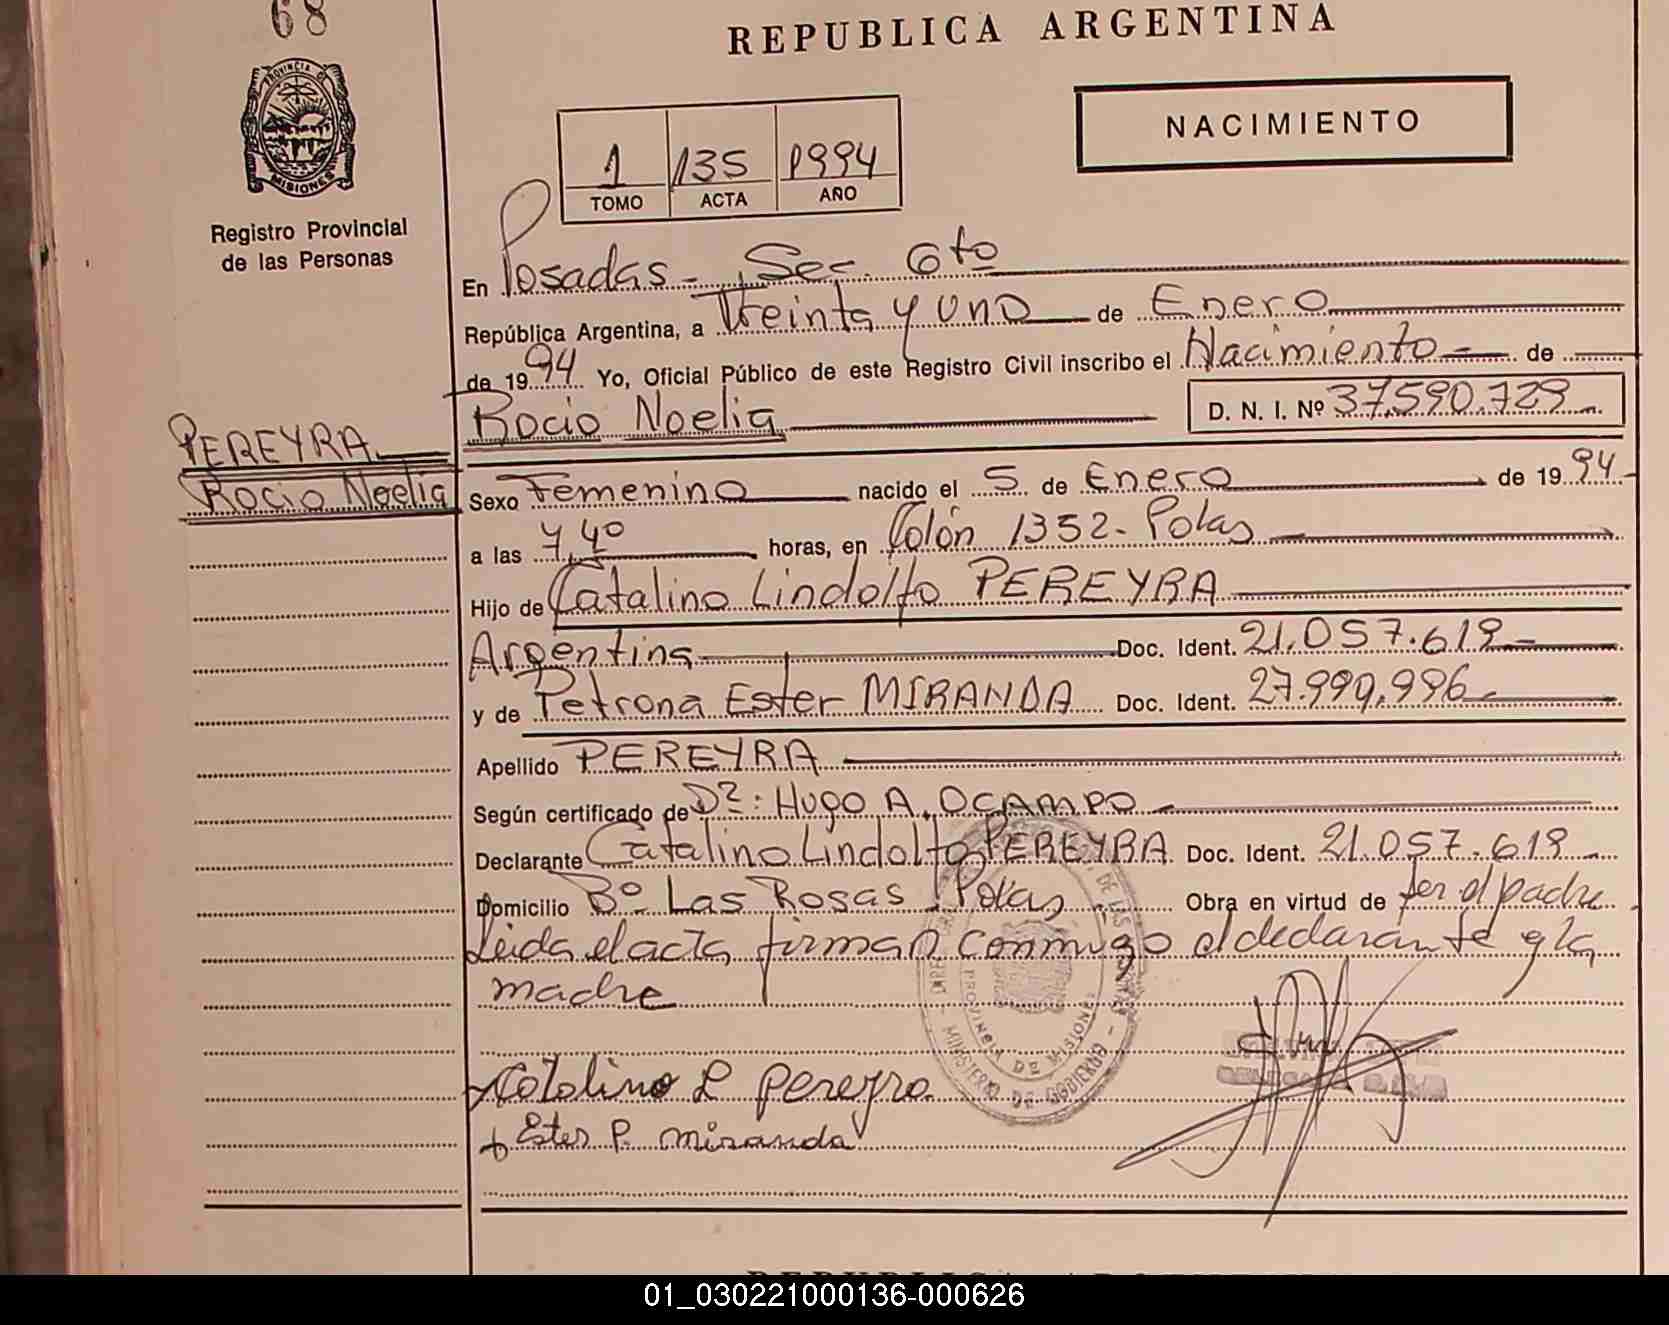 68
REPUBLICA ARGENTINA
PROVINCIA DE
MISIONES
Registro Provincial
de las Personas
NACIMIENTO
1 135 1994
TOMO ACTA AÑO
En Posadas - Sec. 6to
República Argentina, a Treinta y uno de Enero
de 1994 Yo, Oficial Público de este Registro Civil inscribo el Nacimiento - de
Rocio Noelia D. N. I. Nº 37.590.729
PEREYRA
Rocio Noelia
Sexo Femenino nacido el 5 de Enero de 1994
a las 7,40 horas, en Colón 1352 - Pdas
Hijo de Catalino Lindolfo PEREYRA
Argentina Doc. Ident. 21.057.619
y de Petrona Ester MIRANDA Doc. Ident. 27.999.996
Apellido PEREYRA
Según certificado de Dr: Hugo A. OCAMPO
Declarante Catalino Lindolfo PEREYRA Doc. Ident. 21.057.619
Domicilio Bº Las Rosas Pdas Obra en virtud de ser el padre
Leida el acta firman conmigo el declarante y la
madre
PROVINCIA DE MISIONES
MINISTERIO DE GOBIERNO
Catalino L Pereyra
Ester P. Miranda
01_030221000136-000626